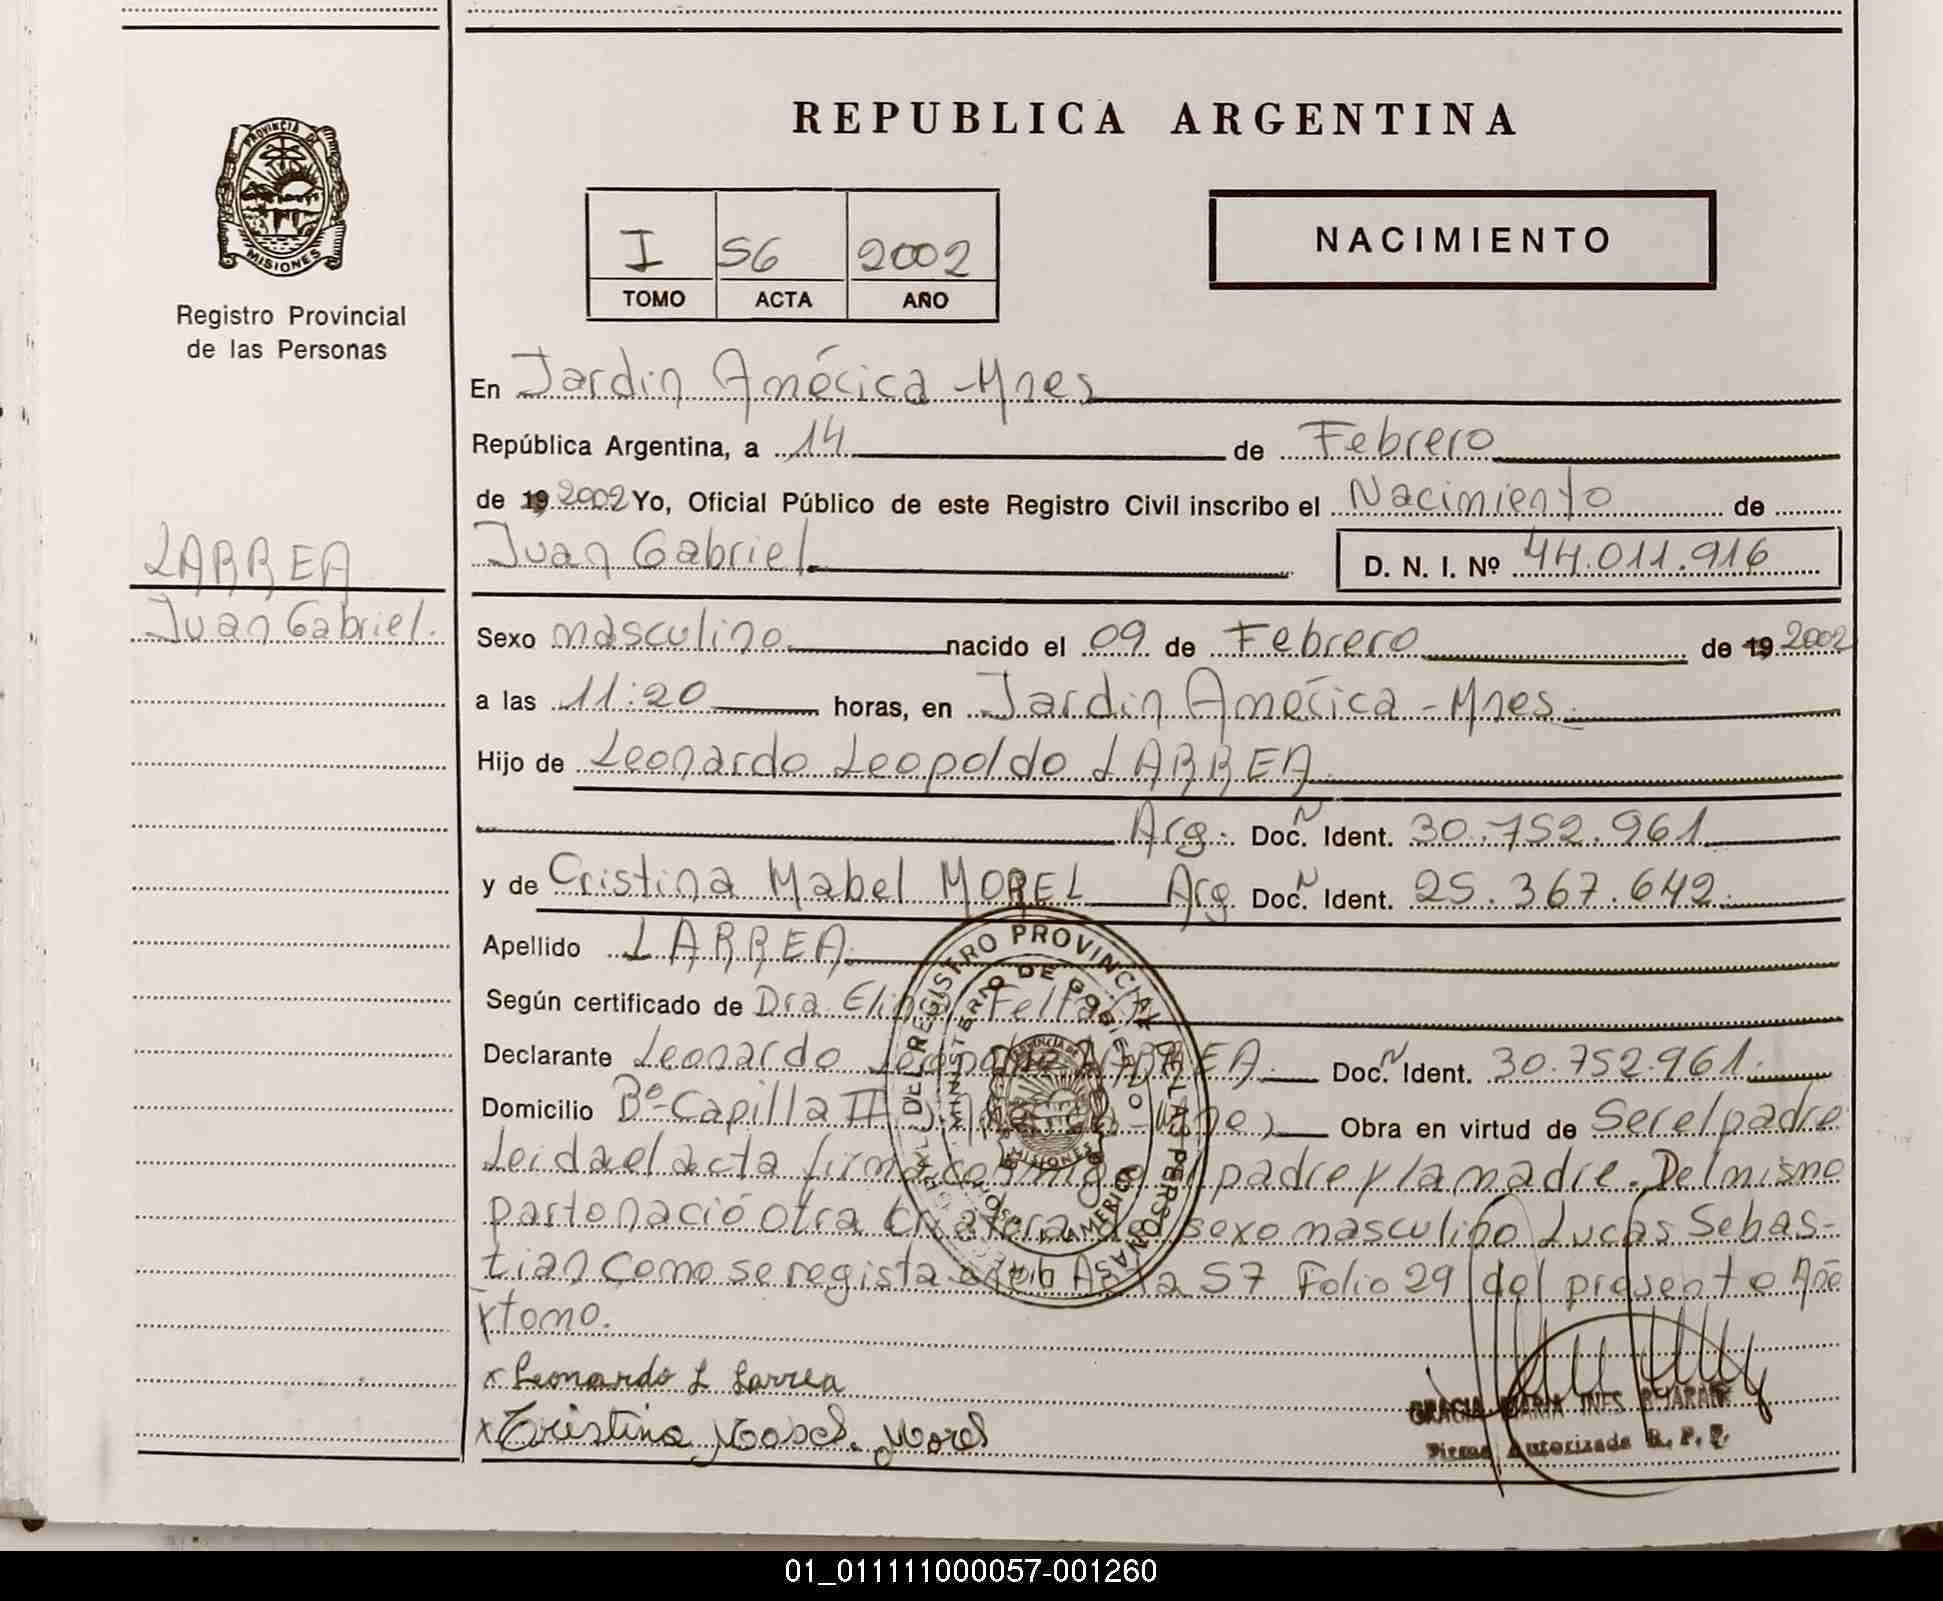 REPUBLICA ARGENTINA
PROVINCIA DE
MISIONES
Registro Provincial
de las Personas
I 56 2002
TOMO ACTA AÑO
NACIMIENTO
En Jardin América - Mnes
República Argentina, a 14 de Febrero
de 19 2002 Yo, Oficial Público de este Registro Civil inscribo el Nacimiento de
Juan Gabriel D. N. I. Nº 44.011.916
LARREA
Juan Gabriel.
Sexo masculino nacido el 09 de Febrero de 19 2002
a las 11:20 horas, en Jardin América - Mnes.
Hijo de Leonardo Leopoldo LARREA.
Arg. Doc. Ident. 30.752.961
y de Cristina Mabel MOREL Arg. Doc. Ident. 25.367.642.
Apellido LARREA.
Según certificado de Dra
Declarante Leonardo Leopoldo LARREA. Doc. Ident. 30.752.961.
Domicilio Bº-Capilla II Obra en virtud de Ser el padre
Leida el acta firma conmigo el padre y la madre. Del mismo
parto nació otra criatura de sexo masculino Lucas Sebas-
tian como se regista en Acta 57 Folio 29 del presente Año
y tomo.
x Leonardo L Larrea
x Cristina Mabel. Morel
DEL REGISTRO PROVINCIAL DE LAS PERSONAS
MINISTERIO DE GOBIERNO
MISIONES
GRACIA MARIA INES
Firma Autorizada R. P. P.
01_011111000057-001260